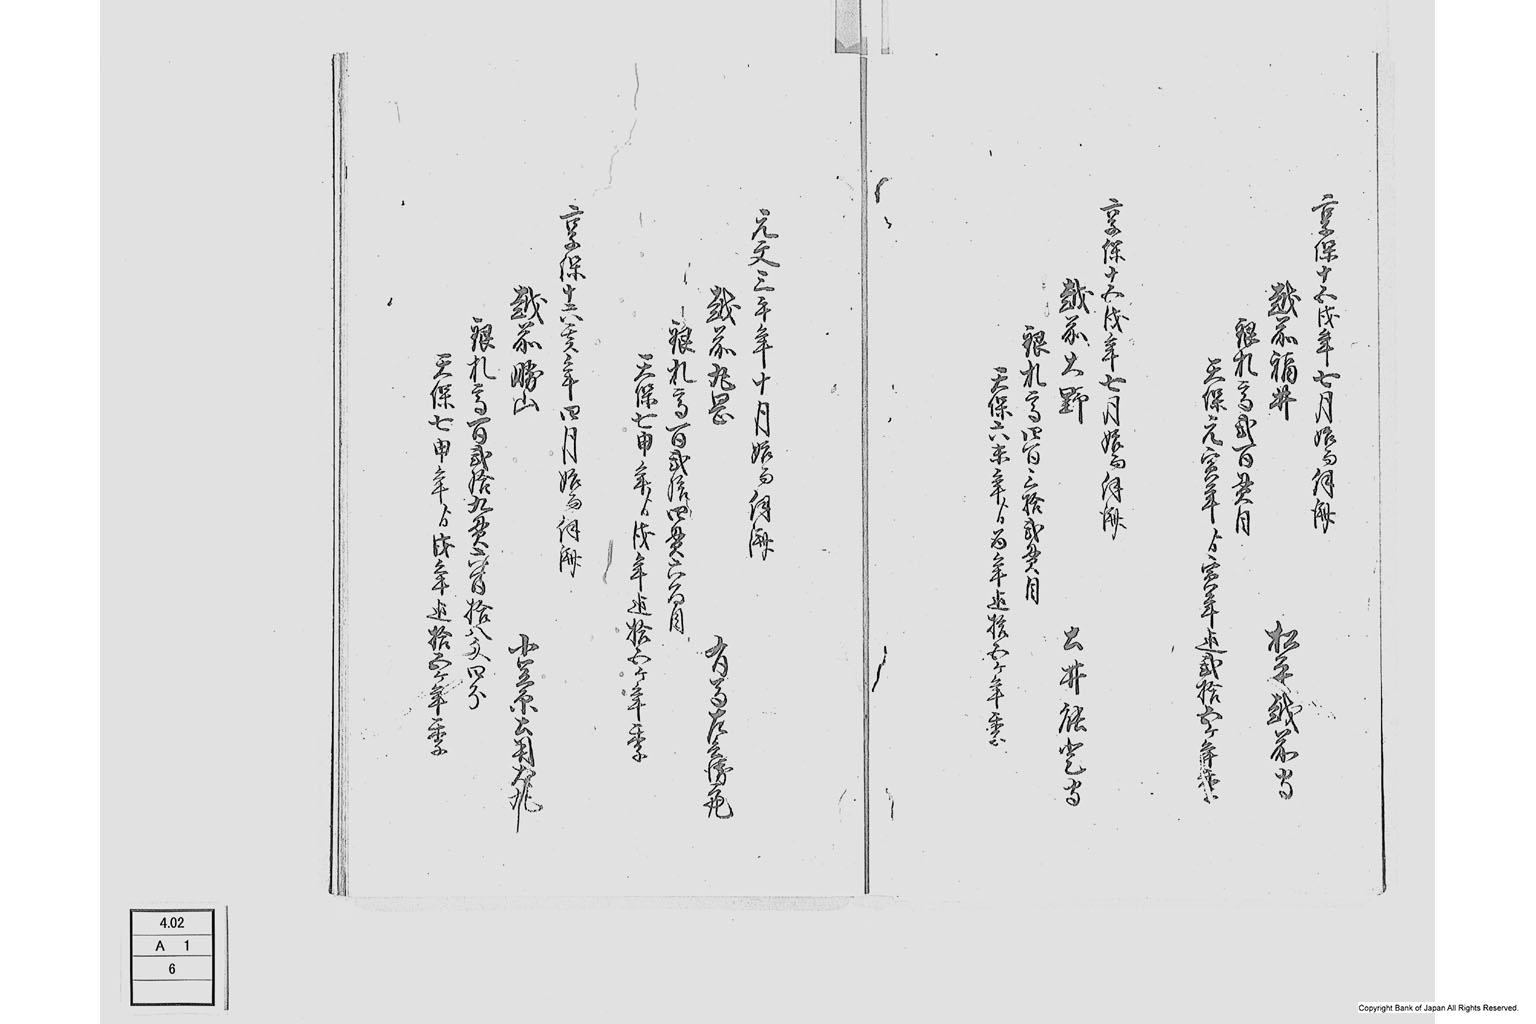 享保十五戌年七月始而伺済
越前福井
松平越前守
銀札高弐百貫目
天保元寅年ゟ寅年迄弐拾五ケ年季
享保十五戌年七月始而伺済
越前大野
土井能登守
銀札高四百三拾弐貫目
天保六未年ゟ酉年迄拾五ケ年季
元文三午年十月始而伺済
越前丸岡
有馬左兵衛佐
銀札高百弐拾四貫六百目
天保七申年ゟ戌年迄拾五ケ年季
享保十六亥年四月始而伺済
越前勝山
小笠原
銀札高百弐拾九貫六百拾八匁四分
天保七申年ゟ戌年迄拾五ケ年季
4.02
A 1
6
Copyright Bank of Japan All Rights Reserved.